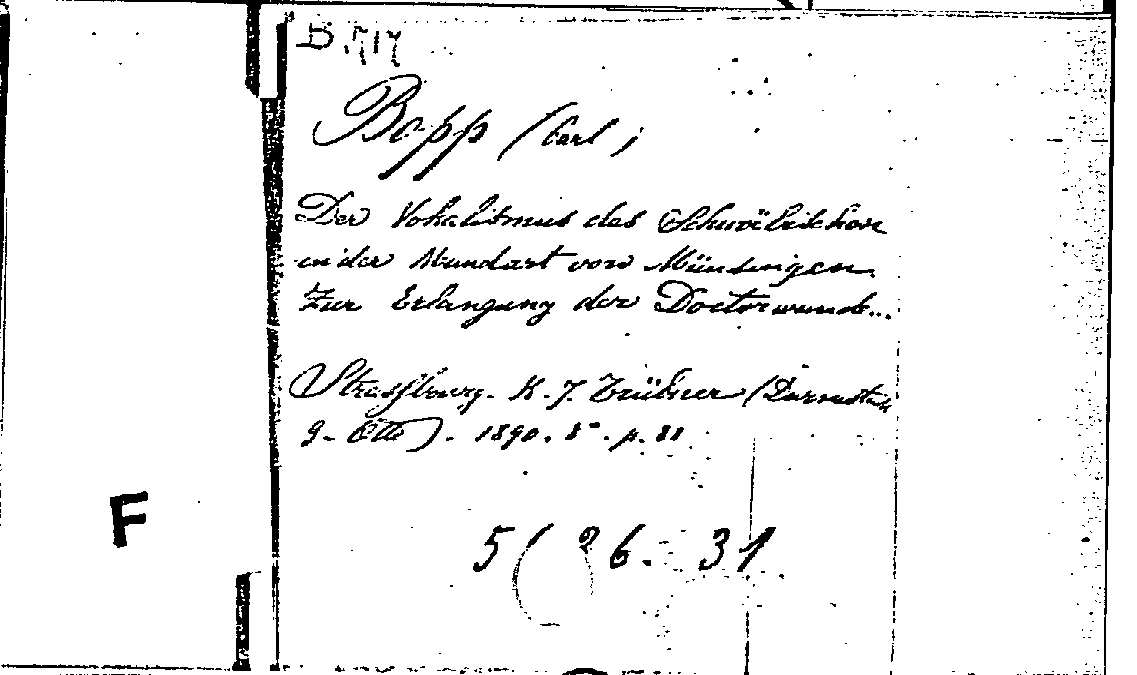 B.717
Bopp (Carl)
Der Vokalismus des Schwäbischen
in der Mundart von Münsingen.
Zur Erlangung der Doctorwürde...
Strassburg. K. J. Trübner (Darmstadt
G. Otto). 1890. 8°. p. 81
F
5( 26. 31